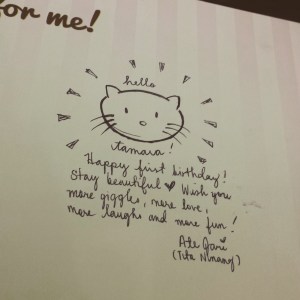 for me!
hello
tamara!
Happy first birthday!
Stay beautiful ♥ Wish you
more giggles, more love,
more laughs and more fun!
Ate
(Tita Ninang)